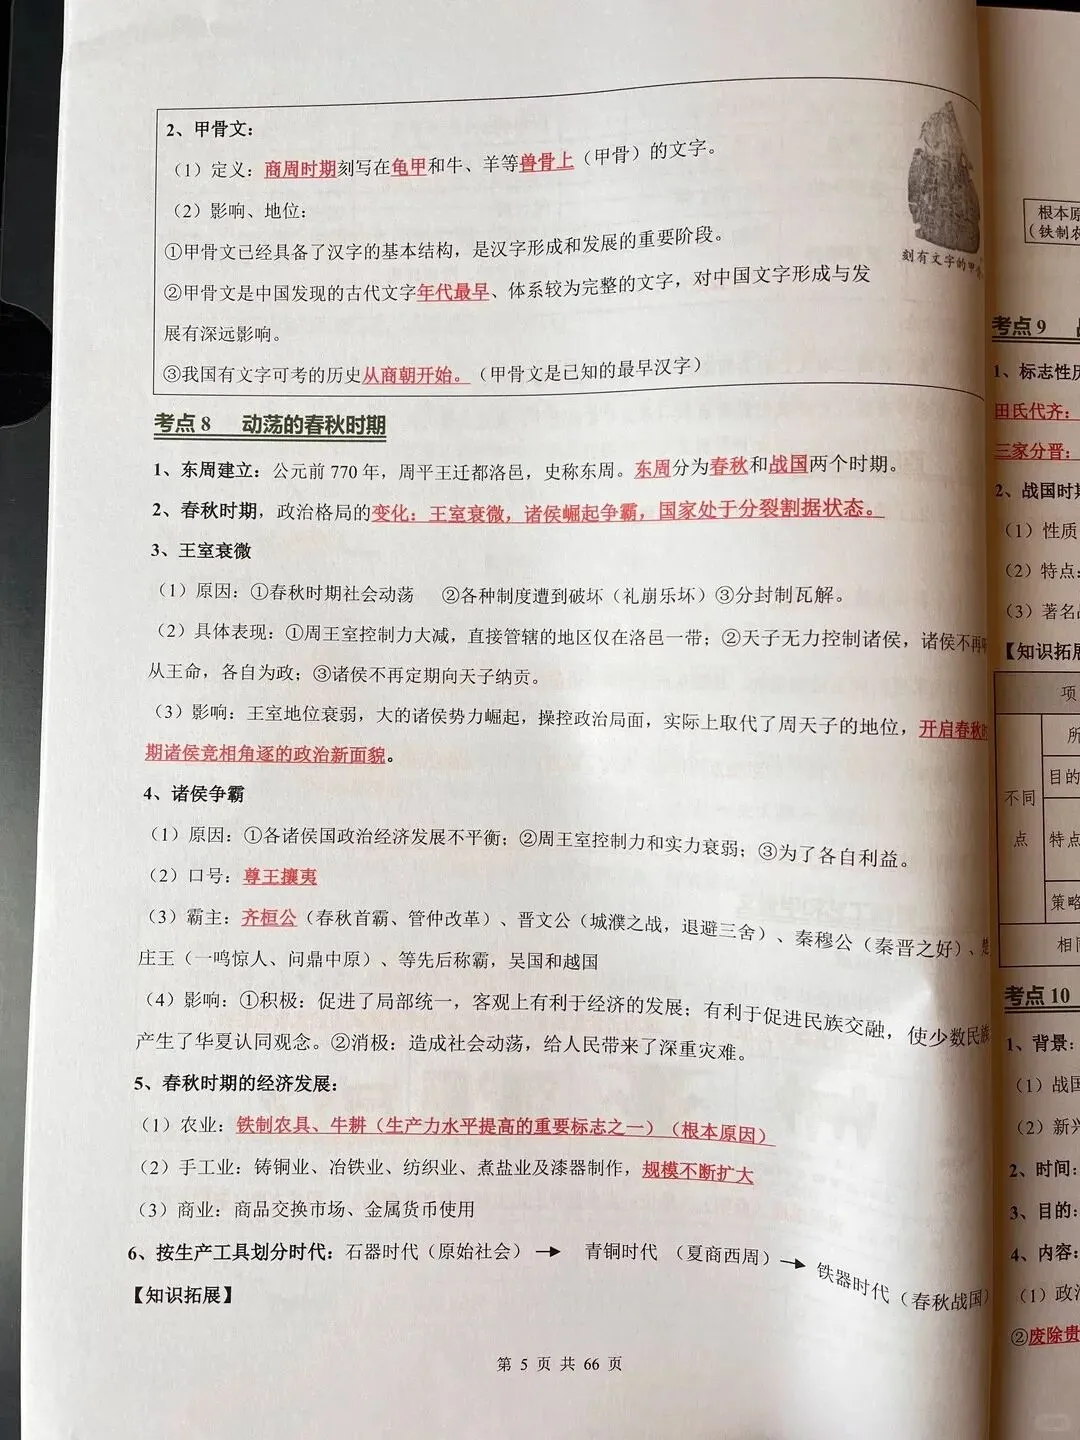 2、甲骨文：
（1）定义：商周时期刻写在龟甲和牛、羊等兽骨上（甲骨）的文字。
（2）影响、地位：
①甲骨文已经具备了汉字的基本结构，是汉字形成和发展的重要阶段。
②甲骨文是中国发现的古代文字年代最早、体系较为完整的文字，对中国文字形成与发
展有深远影响。
③我国有文字可考的历史从商朝开始。（甲骨文是已知的最早汉字）
刻有文字的甲
考点 8 动荡的春秋时期
1、东周建立：公元前 770 年，周平王迁都洛邑，史称东周。东周分为春秋和战国两个时期。
2、春秋时期，政治格局的变化：王室衰微，诸侯崛起争霸，国家处于分裂割据状态。
3、王室衰微
（1）原因：①春秋时期社会动荡 ②各种制度遭到破坏（礼崩乐坏）③分封制瓦解。
（2）具体表现：①周王室控制力大减，直接管辖的地区仅在洛邑一带；②天子无力控制诸侯，诸侯不再听
从王命，各自为政；③诸侯不再定期向天子纳贡。
（3）影响：王室地位衰弱，大的诸侯势力崛起，操控政治局面，实际上取代了周天子的地位，开启春秋时
期诸侯竞相角逐的政治新面貌。
4、诸侯争霸
（1）原因：①各诸侯国政治经济发展不平衡；②周王室控制力和实力衰弱；③为了各自利益。
（2）口号：尊王攘夷
（3）霸主：齐桓公（春秋首霸、管仲改革）、晋文公（城濮之战，退避三舍）、秦穆公（秦晋之好）、楚
庄王（一鸣惊人、问鼎中原）、等先后称霸，吴国和越国
（4）影响：①积极：促进了局部统一，客观上有利于经济的发展；有利于促进民族交融，使少数民族
产生了华夏认同观念。②消极：造成社会动荡，给人民带来了深重灾难。
5、春秋时期的经济发展：
（1）农业：铁制农具、牛耕（生产力水平提高的重要标志之一）（根本原因）
（2）手工业：铸铜业、冶铁业、纺织业、煮盐业及漆器制作，规模不断扩大
（3）商业：商品交换市场、金属货币使用
6、按生产工具划分时代：石器时代（原始社会）→ 青铜时代 （夏商西周）→ 铁器时代（春秋战国）
【知识拓展】
第 5 页 共 66 页
根本原
（铁制农
考点 9
1、标志性历
田氏代齐：
三家分晋：
2、战国时期
（1）性质
（2）特点：
（3）著名
【知识拓展
项
不同
点
所
目的
特点
策略
相同
考点 10
1、背景：
（1）战国
（2）新兴
2、时间：
3、目的：
4、内容：
（1）政治
②废除贵